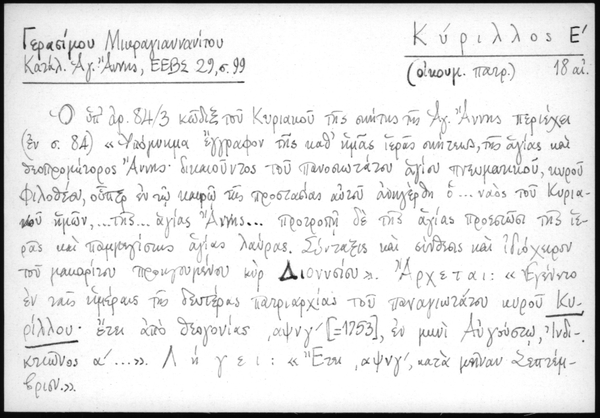 Γερασίμου Μικραγιαννανίτου
Κατάλ. Ἁγ. Ἄννης, ΕΕΒΣ 29, σ. 99
Κύριλλος Ε'
(οἰκουμ. πατρ.) 18 αἰ.
Ὁ ὑπ' ἀρ. 84/3 κῶδιξ τοῦ Κυριακοῦ τῆς σκήτης τῆς Ἁγ. Ἄννης περιέχει
(ἐν σ. 84) «Ὑπόμνημα ἔγγραφον τῆς καθ' ἡμᾶς ἱερᾶς σκήτεως, τῆς ἁγίας καὶ
θεοπρομήτορος Ἄννης· δικαιοῦντος τοῦ πανοσιωτάτου ἁγίου πνευματικοῦ, κυροῦ
Φιλοθέου, οὗπερ ἐν τῷ καιρῷ τῆς προστασίας αὐτοῦ ἀνηγέρθη ὁ... ναὸς τοῦ Κυρια-
κοῦ ἡμῶν, ...τῆς... ἁγίας Ἄννης... προτροπῇ δὲ τῆς ἁγίας προεστῶσι τῆς ἱε-
ρᾶς καὶ παμμεγίστης ἁγίας λαύρας. Σύνταξις καὶ σύνθεσις καὶ ἰδιόχειρον
τοῦ μακαρίτου προηγουμένου κὺρ Διονυσίου». Ἄρχεται: «Ἐγένετο
ἐν ταῖς ἡμέραις τῆς δευτέρας πατριαρχίας τοῦ παναγιωτάτου κυροῦ Κυ-
ρίλλου· ἔτει ἀπὸ θεογονίας ͵αψνγ' [=1753], ἐν μηνὶ Αὐγούστῳ, Ἰνδι-
κτιῶνος α'...». Λήγει: «Ἔτει ͵αψνγ', κατὰ μῆναν Σεπτέμ-
βριον.».